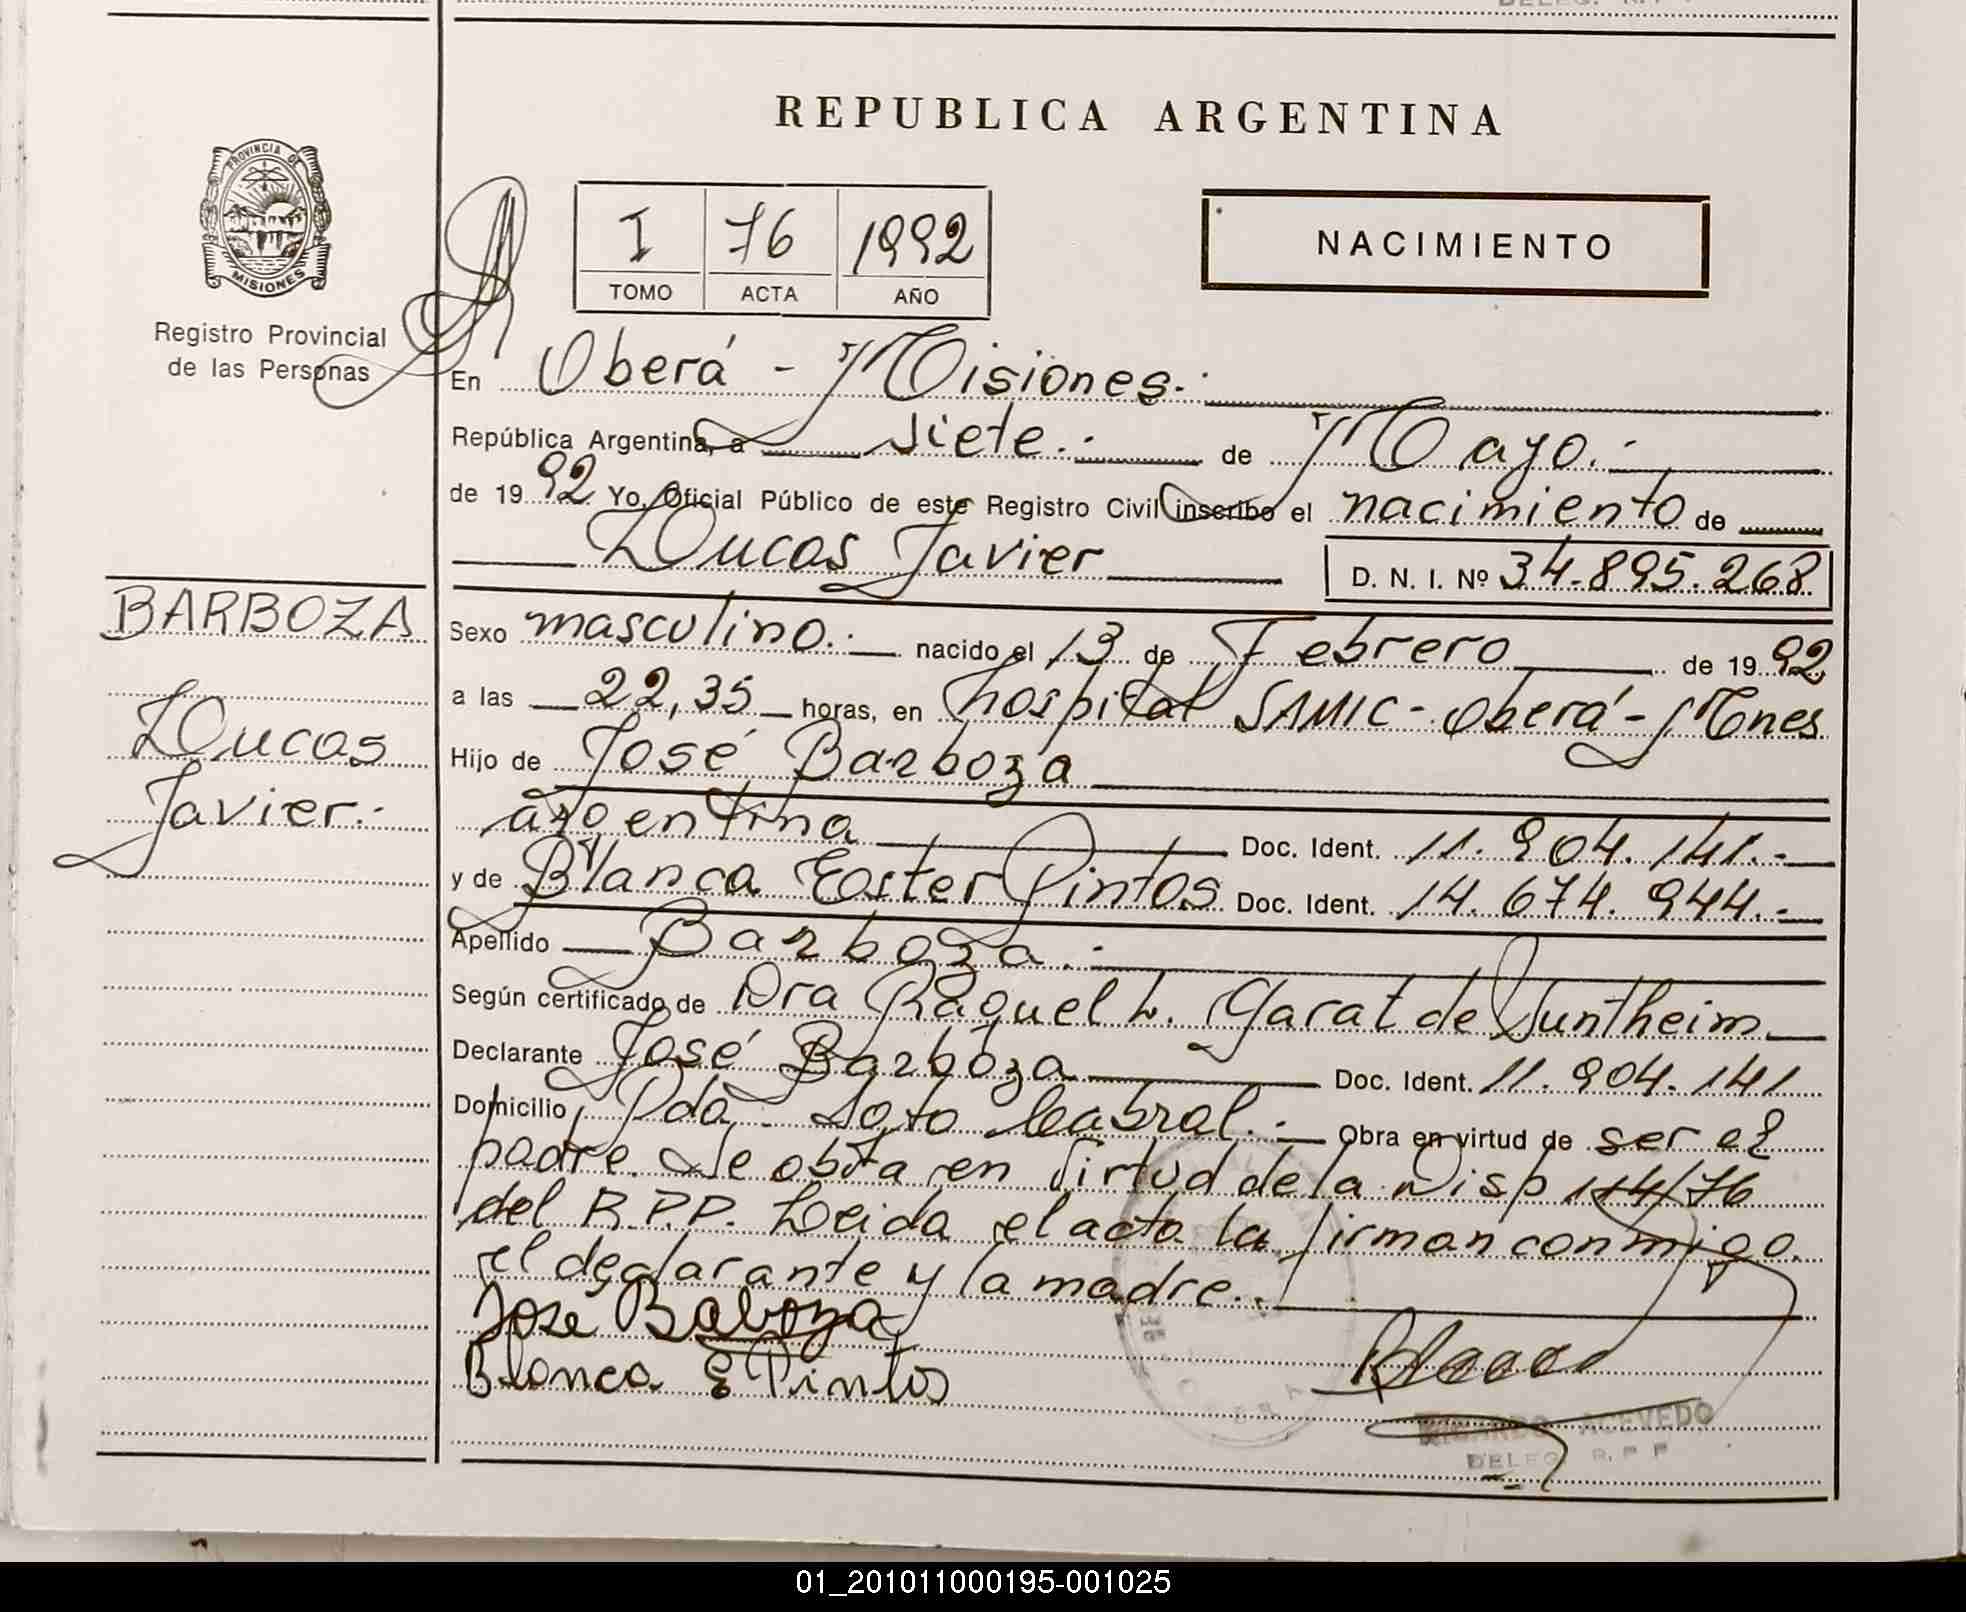 REPUBLICA ARGENTINA
PROVINCIA DE
MISIONES
Registro Provincial
de las Personas
I 76 1992
TOMO ACTA AÑO
NACIMIENTO
En Oberá - Misiones.-
República Argentina, a siete.- de Mayo.-
de 1992 Yo, Oficial Público de este Registro Civil inscribo el nacimiento de
Lucas Javier D. N. I. Nº 34.895.268
BARBOZA
Lucas
Javier.-
Sexo masculino.- nacido el 13 de Febrero de 1992
a las 22,35 horas, en hospital SAMIC - Oberá - Mnes
Hijo de José Barboza
argentina Doc. Ident. 11.904.141.-
y de Blanca Ester Pintos Doc. Ident. 14.674.944.-
Apellido Barboza.-
Según certificado de Dra Raquel L. Garat de Suntheim
Declarante José Barboza Doc. Ident. 11.904.141
Domicilio Pda. Soto Cabral.- Obra en virtud de ser el
padre. Se obra en virtud de la Disp 114/76
del R.P.P. Leida el acta la firman conmigo
el declarante y la madre.-
José Baboza
Blanca E Pintos
RICARDO ACEVEDO
DELEG. R.P.P
01_201011000195-001025